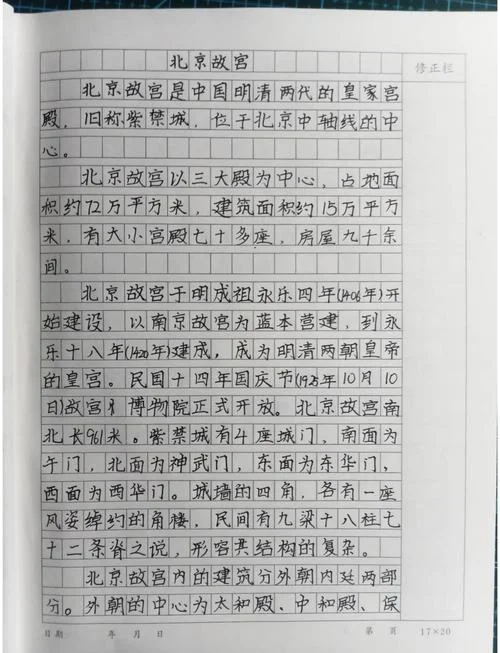 北京故宫
修正栏
北京故宫是中国明清两代的皇家宫
殿，旧称紫禁城，位于北京中轴线的中
心。
北京故宫以三大殿为中心，占地面
积约72万平方米，建筑面积约15万平方
米，有大小宫殿七十多座，房屋九千余
间。
北京故宫于明成祖永乐四年(1406年)开
始建设，以南京故宫为蓝本营建，到永
乐十八年(1420年)建成，成为明清两朝皇帝
的皇宫。民国十四年国庆节(1925年10月10
日)故宫博物院正式开放。北京故宫南
北长961米。紫禁城有4座城门，南面为
午门，北面为神武门，东面为东华门，
西面为西华门。城墙的四角，各有一座
风姿绰约的角楼，民间有九梁十八柱七
十二条脊之说，形容其结构的复杂。
北京故宫内的建筑分外朝内廷两部
分。外朝的中心为太和殿、中和殿、保
日期 年 月 日 第 页 17×20